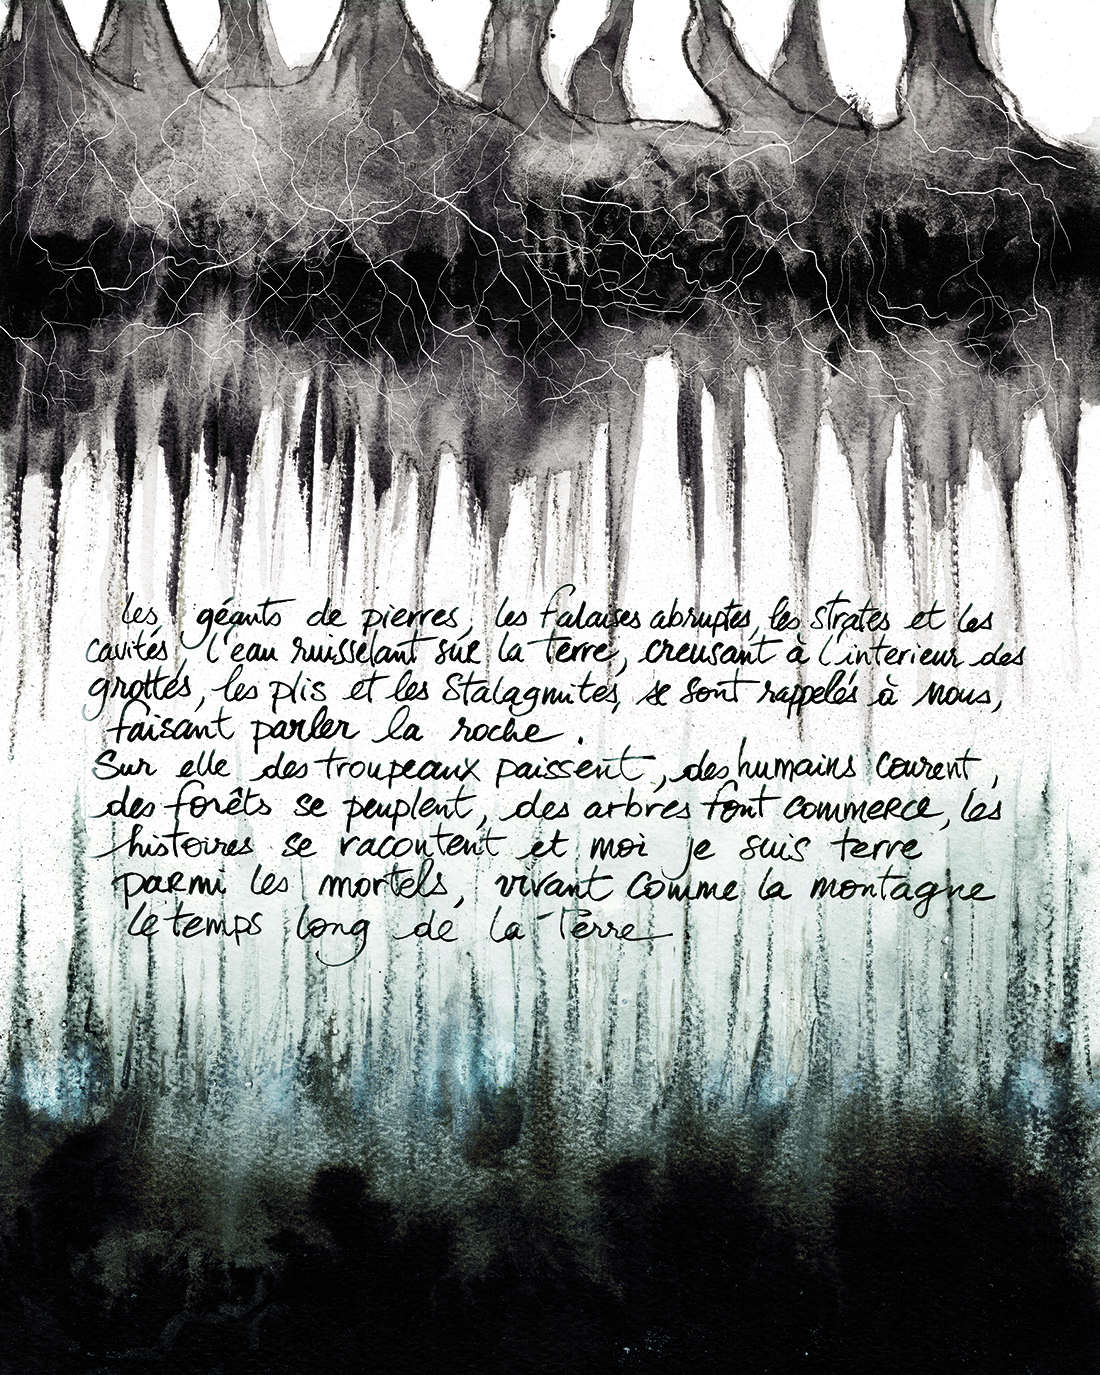 les géants de pierres, les falaises abruptes, les strates et les
cavités, l'eau ruisselant sur la terre, creusant à l'interieur des
grottes, les plis et les stalagmites, se sont rappelés à nous,
faisant parler la roche.
Sur elle des troupeaux paissent, des humains courent,
des forêts se peuplent, des arbres font commerce, les
histoires se racontent et moi je suis terre
parmi les mortels, vivant comme la montagne
le temps long de la Terre.